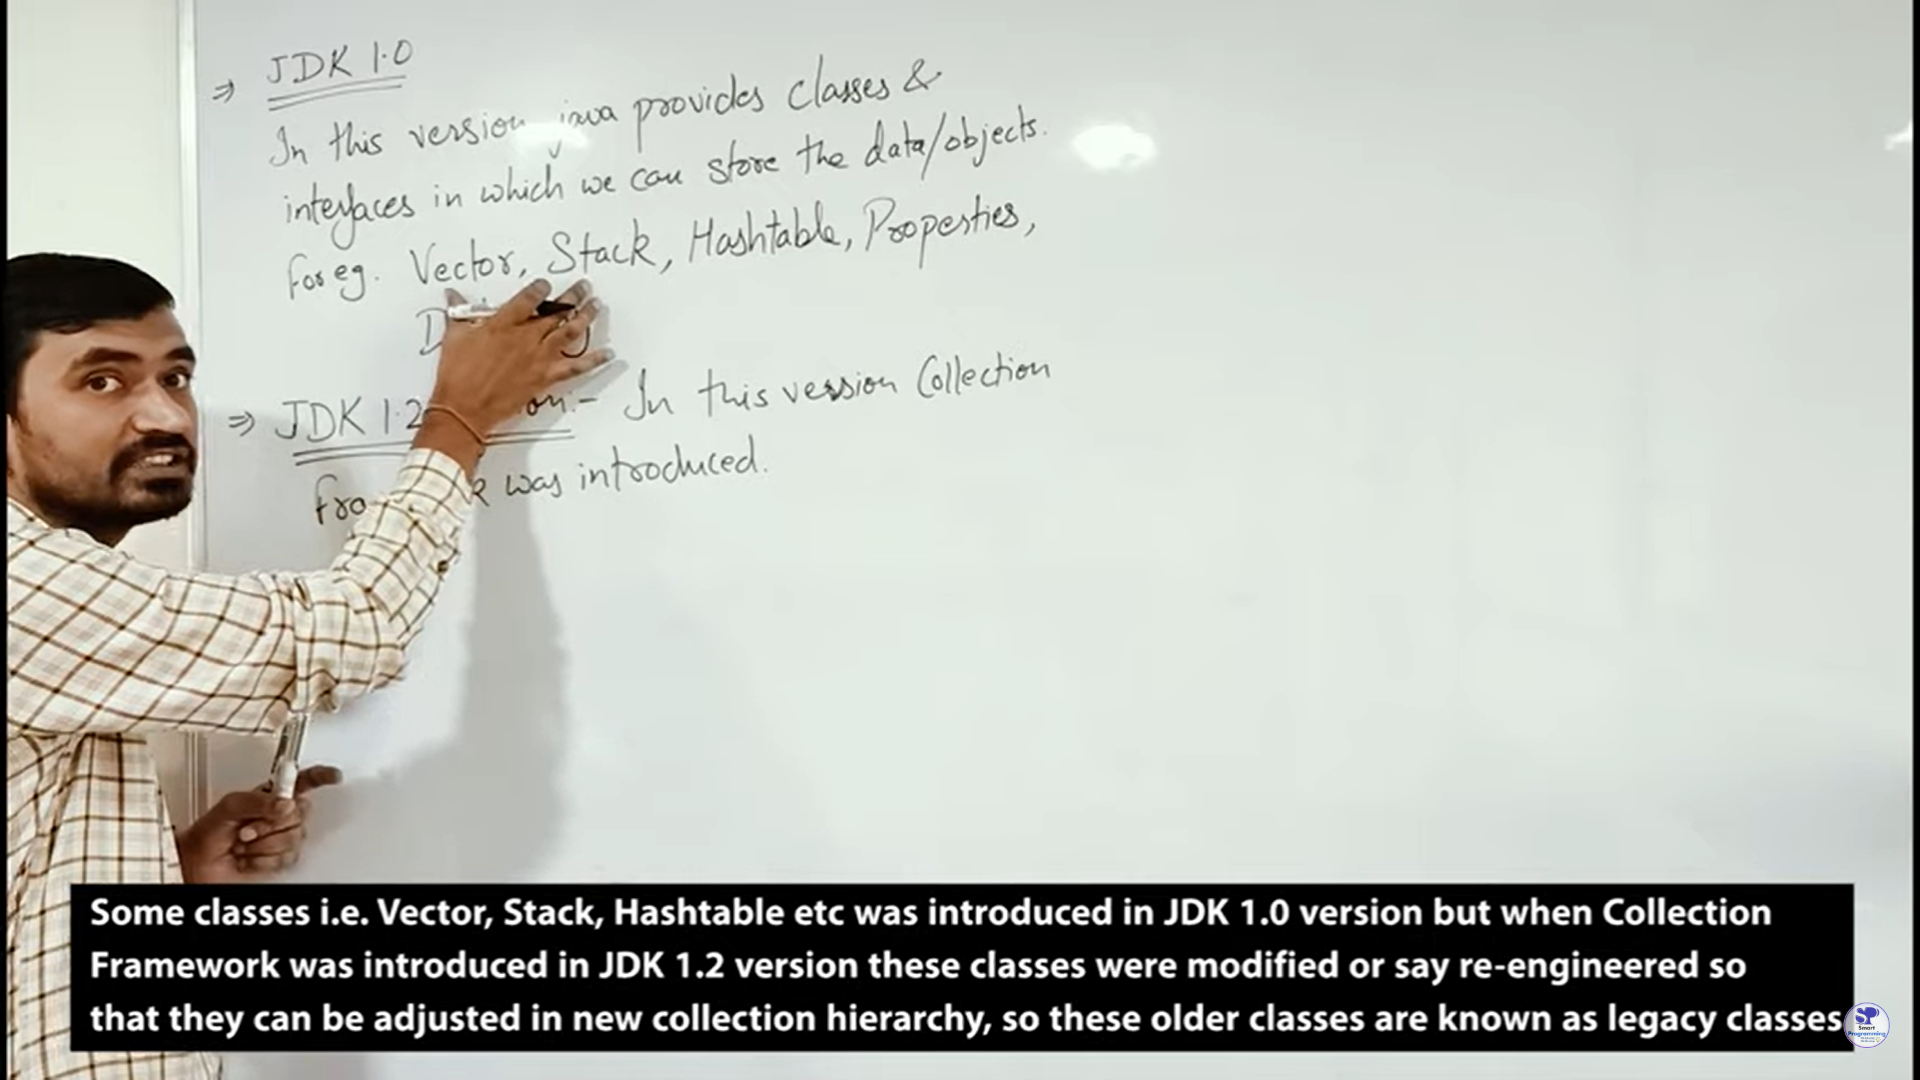 ⇒ JDK 1.0
In this version java provides classes &
interfaces in which we can store the data/objects.
For eg. Vector, Stack, Hashtable, Properties,
⇒ JDK 1.2 :- In this version Collection
was introduced.
Some classes i.e. Vector, Stack, Hashtable etc was introduced in JDK 1.0 version but when Collection
Framework was introduced in JDK 1.2 version these classes were modified or say re-engineered so
that they can be adjusted in new collection hierarchy, so these older classes are known as legacy classes
SP
Smart
Programming